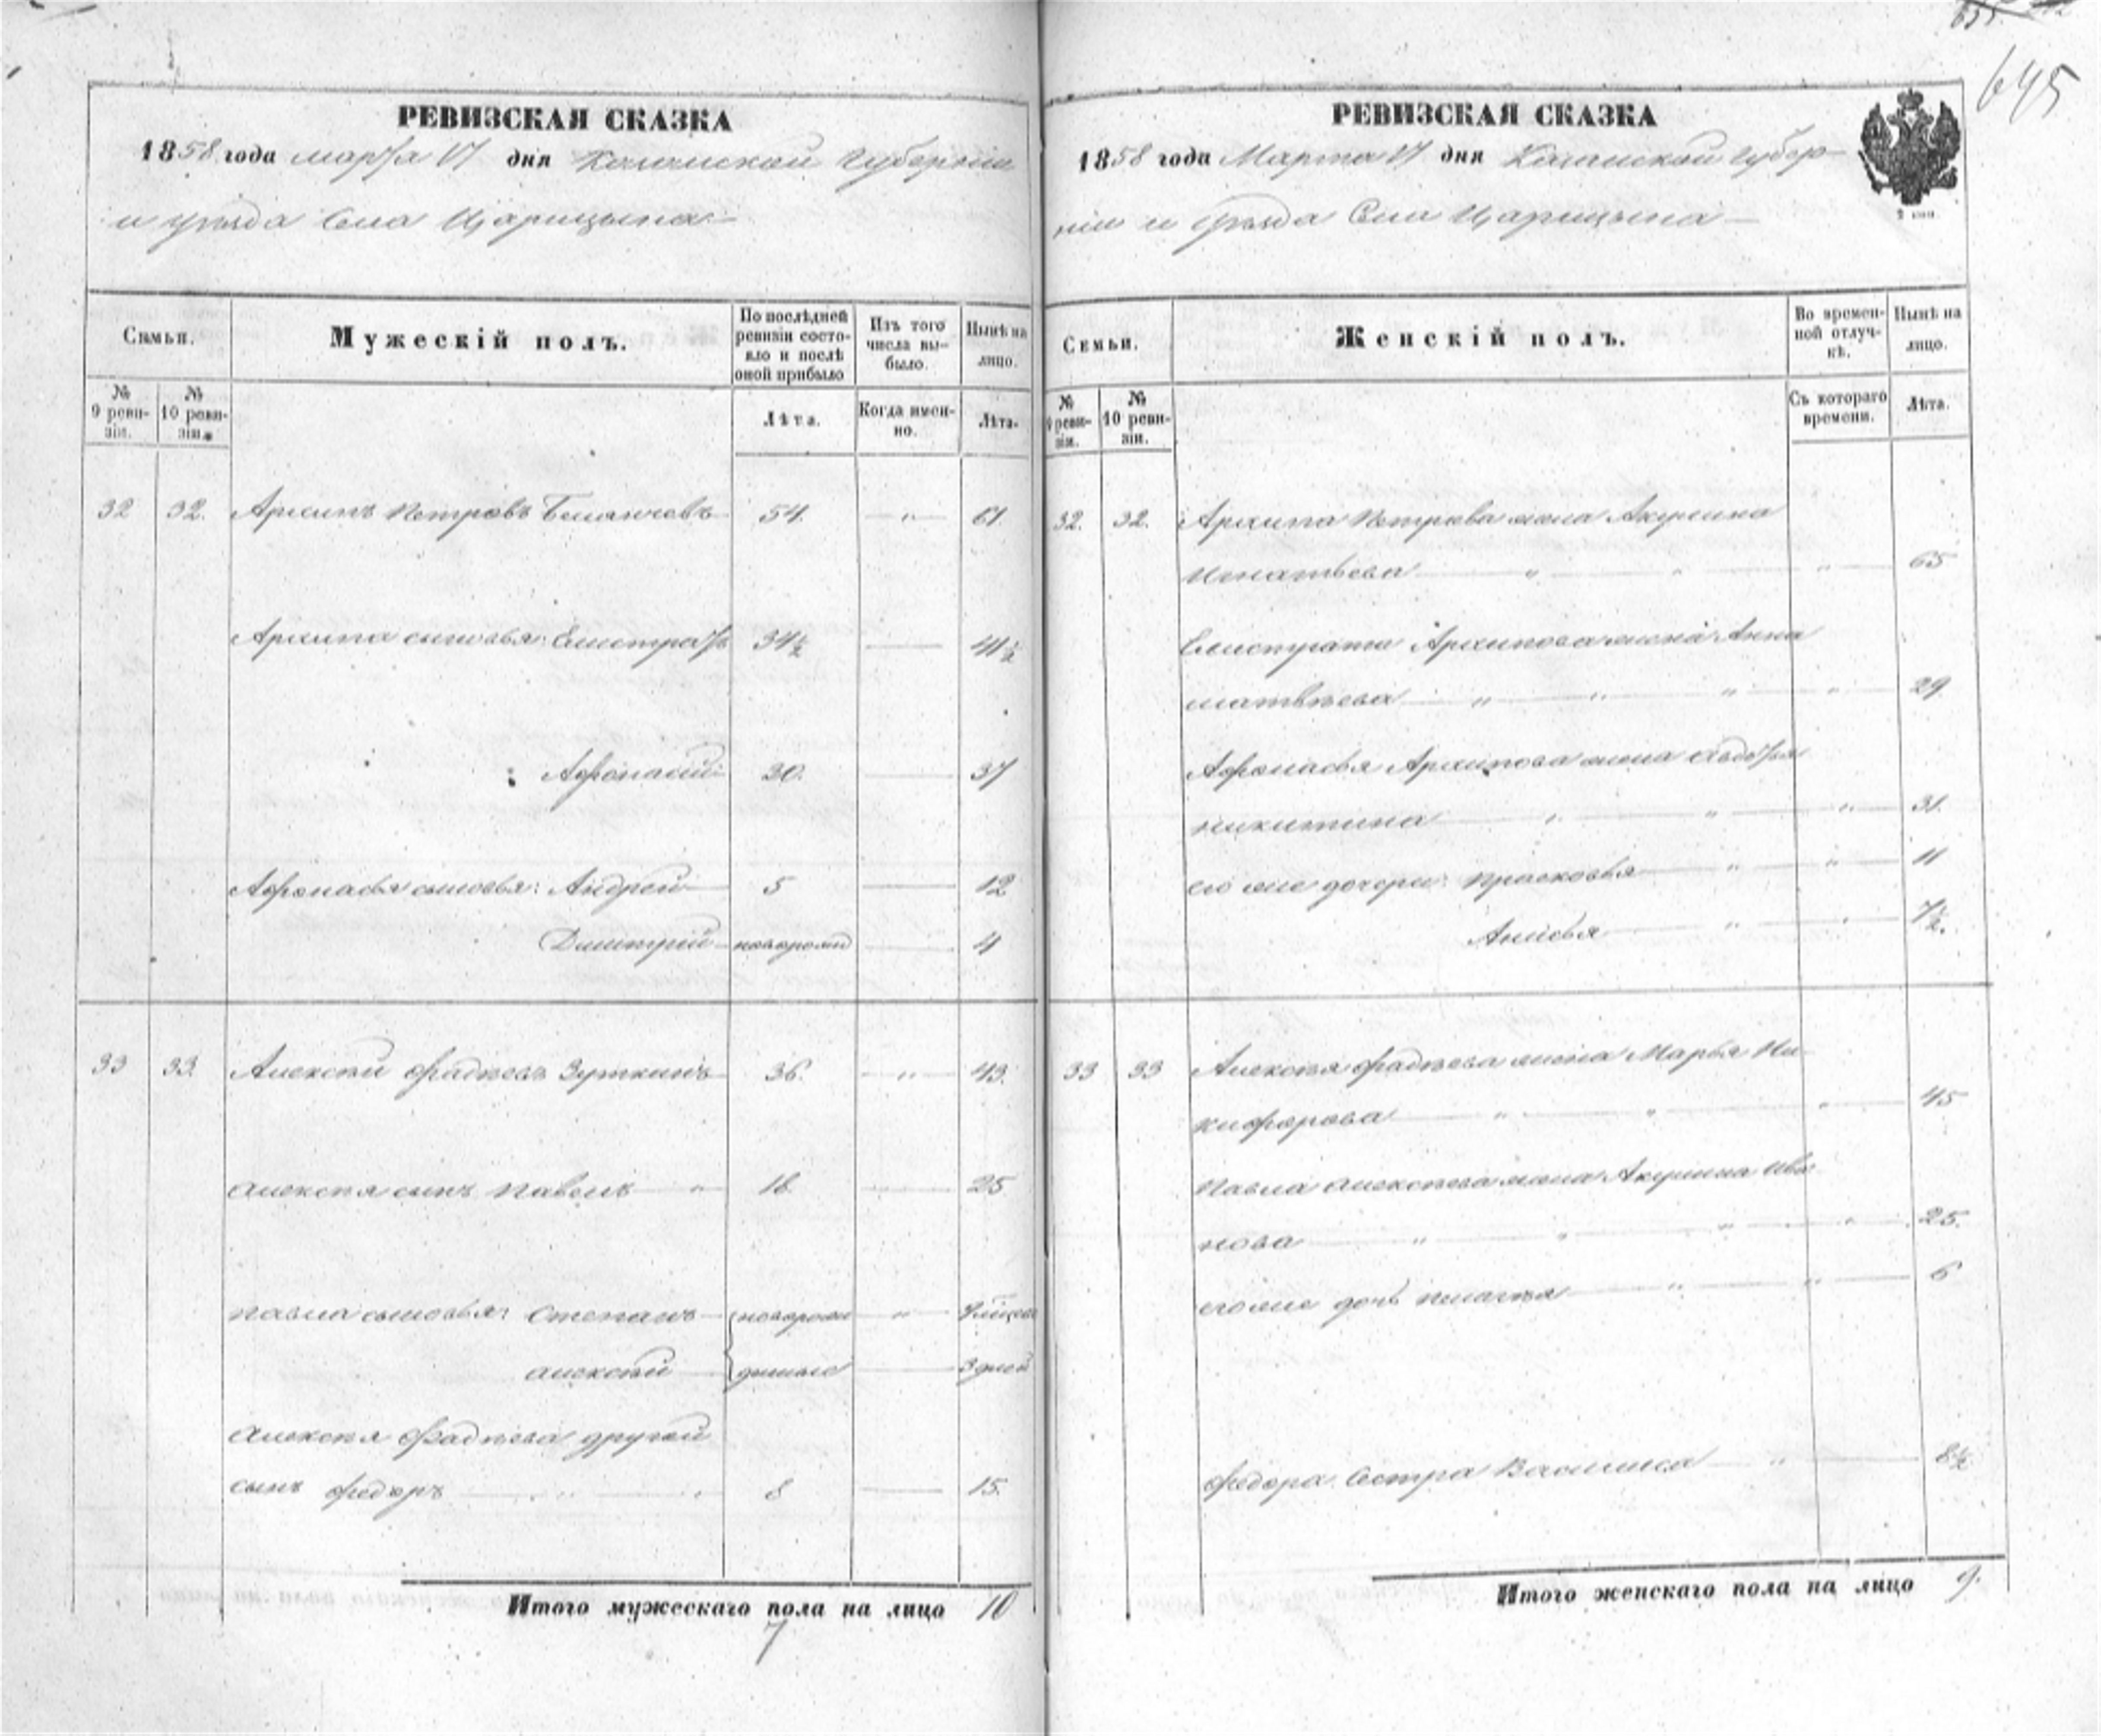 645
РЕВИЗСКАЯ СКАЗКА
1858 года марта 17 дня Казанской Губерніи
и уѣзда Села Царицына
Семьи.
Мужескій полъ.
По послѣдней ревизіи состояло и послѣ оной прибыло
Изъ того числа выбыло.
Нынѣ на лицо.
№ 9 ревизіи.
№ 10 ревизіи.
Лѣта.
Когда именно.
Лѣта.
32 32. Архипъ Петровъ 54. — " — 61
Архипа сыновья: Елистратъ 34½ — 41½
Афонасій 30. — 37
Афонасья сыновья: Андрей 5 — 12
Дмитрій новорожд — 4
33 33. Алексѣй Фадѣевъ Зуткинъ 36. — " — 43.
Алексѣя сынъ Павелъ " 18 — 25
Павла сыновья: Степанъ новорож " —
Алексѣй денные — 3 дней
Алексѣя Фадѣева другой
сынъ Федоръ " 8 — 15.
Итого мужескаго пола на лицо 10
7
РЕВИЗСКАЯ СКАЗКА
1858 года Марта 17 дня Казанской Губер-
ніи и Уѣзда Села Царицына
2 коп.
Семьи.
Женскій полъ.
Во временной отлучкѣ.
Нынѣ на лицо.
№ 9 ревизіи.
№ 10 ревизіи.
Съ котораго времени.
Лѣта.
32. 32. Архипа Петрова жена Акулина
Игнатьева " " " 65
Елистрата Архипова жена Анна
Матвѣева " " " " 29
Афонасья Архипова жена Авдотья
Никитина " " " 31.
его же дочери: Прасковья " " 11
Анисья " " 7½.
33 33 Алексѣя Фадѣева жена Марья Ни-
кифорова " " " 45
Павла Алексѣева жена Акулина Ива-
нова " " " " 25.
его же дочь Пелагея " " 6
Федора Сестра Василиса " 8½
Итого женскаго пола на лицо 9.